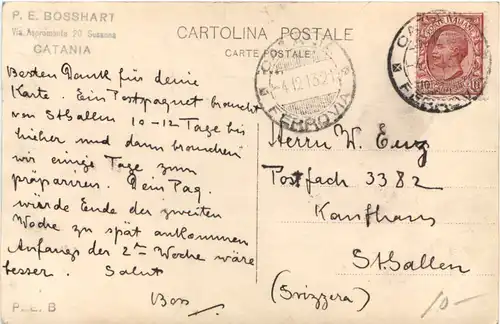 P. E. BOSSHART
Via Aspromonte 29 Susanna
CATANIA
CARTOLINA POSTALE
CARTE POSTALE
Besten Dank für deine
Karte. Ein Postpaquet braucht
von St Gallen 10-12 Tage bis
hieher und dann brauchen
wir einige Tage zum
präpariren. Dein Paq.
würde Ende der zweiten
Woche zu spät ankommen
Anfangs der 2ten Woche wäre
besser. Salut
Boss
P. E. B
FERROVIA
Herrn W. Enz
Postfach 3382
Kaufhaus
St Gallen
(Svizzera)
10-